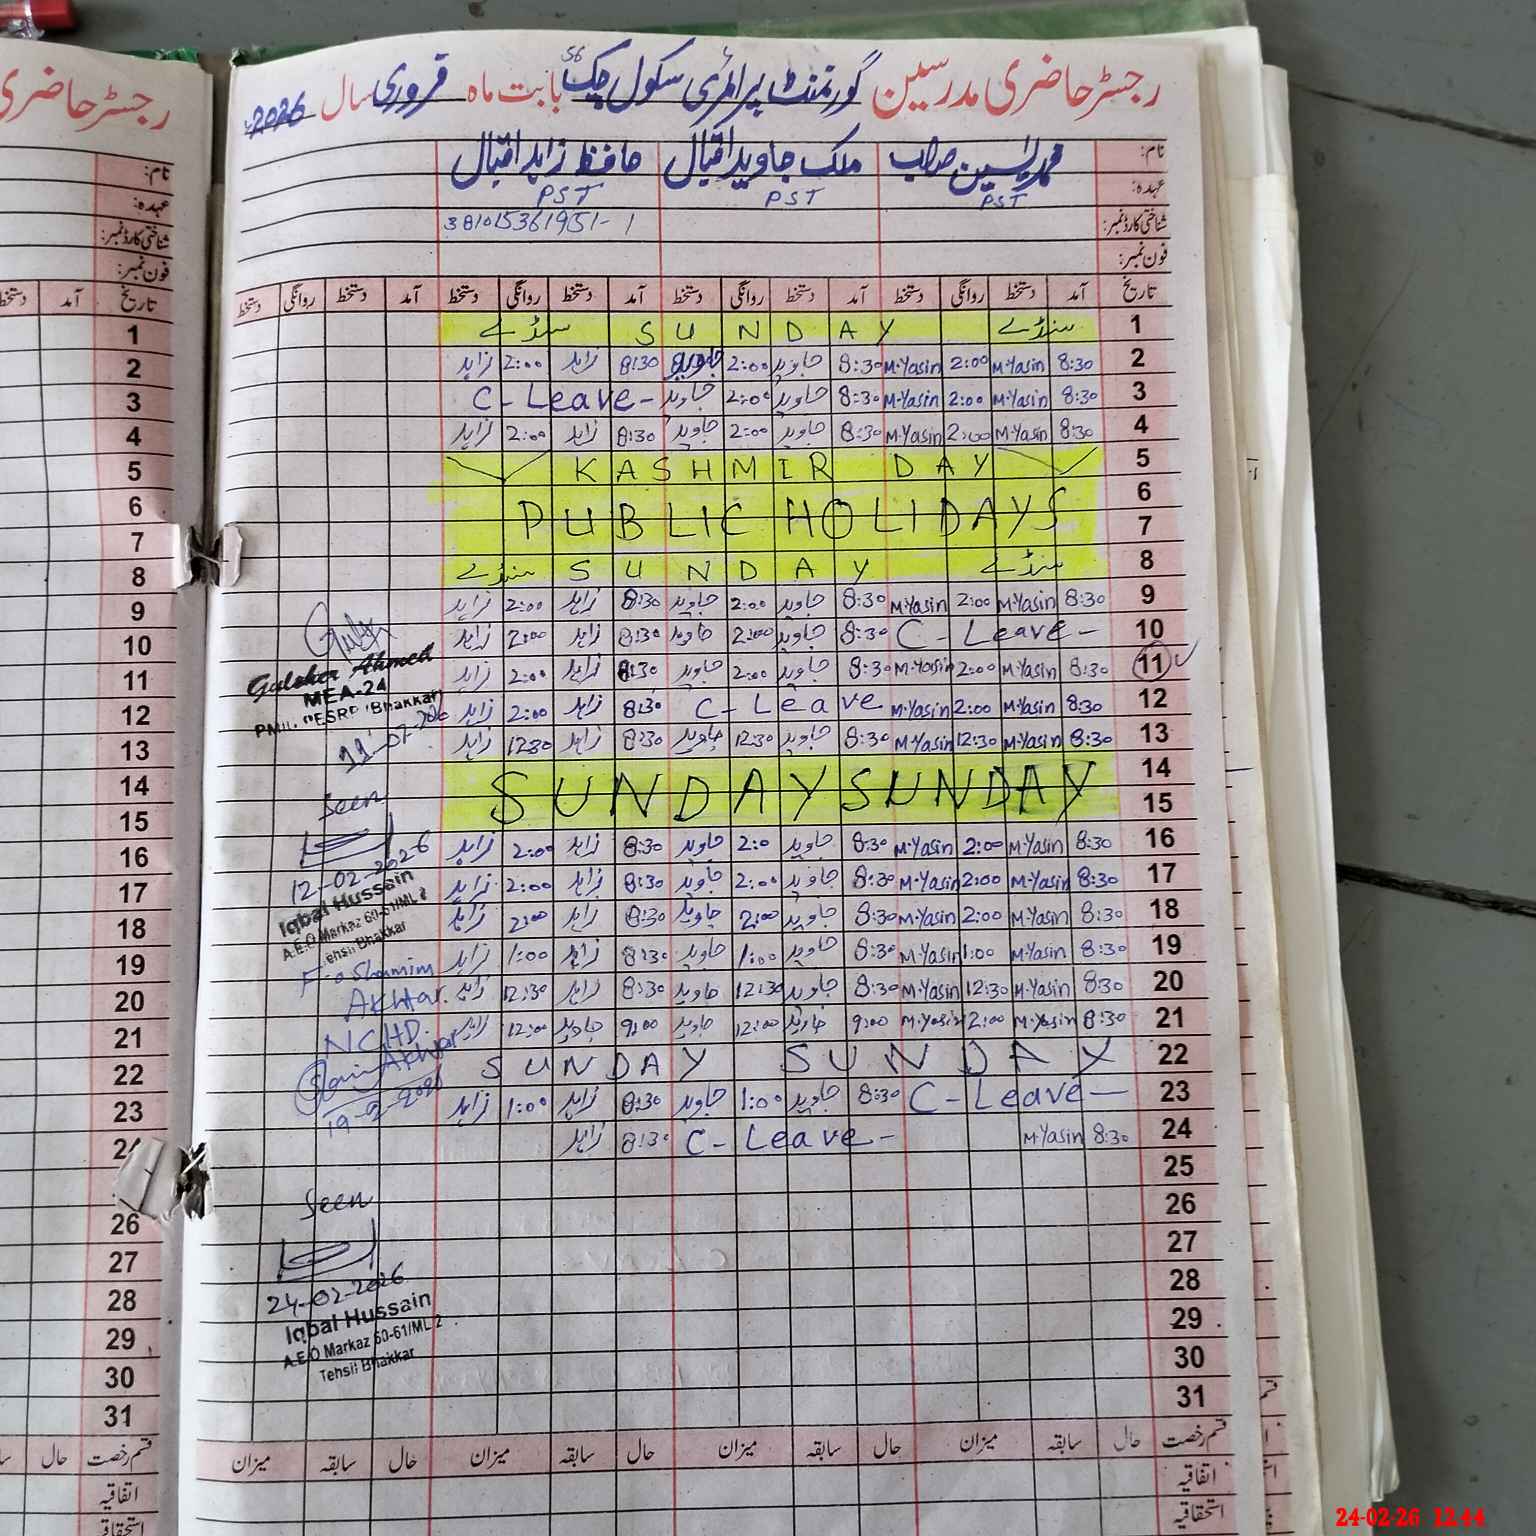 رجسٹر حاضری مدرسین گورنمنٹ پرائمری سکول چک 56 بابت ماہ فروری سال 2026
نام: محمد یٰسین ملک جاوید اقبال حافظ زاہد اقبال
عہدہ: PST PST PST
شناختی کارڈ نمبر: 381015361951-1
فون نمبر:
تاریخ آمد دستخط روانگی دستخط آمد دستخط روانگی دستخط آمد دستخط روانگی دستخط آمد دستخط روانگی دستخط
1 سنڈے SUNDAY سنڈے
2 8:30 M.Yasin 2:00 M.Yasin 8:30 جاوید 2:00 جاوید 8:30 زاہد 2:00 زاہد
3 8:30 M.Yasin 2:00 M.Yasin 8:30 جاوید 2:00 جاوید C-Leave-
4 8:30 M.Yasin 2:00 M.Yasin 8:30 جاوید 2:00 جاوید 8:30 زاہد 2:00 زاہد
5 KASHMIR DAY
6
7 PUBLIC HOLIDAYS
8 سنڈے SUNDAY سنڈے
9 8:30 M.Yasin 2:00 M.Yasin 8:30 جاوید 2:00 جاوید 8:30 زاہد 2:00 زاہد
10 C-Leave- 8:30 جاوید 2:00 جاوید 8:30 زاہد 2:00 زاہد
11 8:30 M.Yasin 2:00 M.Yasin 8:30 جاوید 2:00 جاوید 8:30 زاہد 2:00 زاہد
12 8:30 M.Yasin 2:00 M.Yasin C-Leave 8:30 زاہد 2:00 زاہد
13 8:30 M.Yasin 12:30 M.Yasin 8:30 جاوید 12:30 جاوید 8:30 زاہد 12:30 زاہد
14
15 SUNDAY SUNDAY
16 8:30 M.Yasin 2:00 M.Yasin 8:30 جاوید 2:0 جاوید 8:30 زاہد 2:00 زاہد
17 8:30 M.Yasin 2:00 M.Yasin 8:30 جاوید 2:00 جاوید 8:30 زاہد 2:00 زاہد
18 8:30 M.Yasin 2:00 M.Yasin 8:30 جاوید 2:00 جاوید 8:30 زاہد 2:00 زاہد
19 8:30 M.Yasin 1:00 M.Yasin 8:30 جاوید 1:00 جاوید 8:30 زاہد 1:00 زاہد
20 8:30 M.Yasin 12:30 M.Yasin 8:30 جاوید 12:30 جاوید 8:30 زاہد 12:30 زاہد
21 8:30 M.Yasin 12:00 M.Yasin 9:00 جاوید 12:00 جاوید 9:00 جاوید 12:00 زاہد
22 SUNDAY SUNDAY
23 C-Leave- 8:30 جاوید 1:00 جاوید 8:30 زاہد 1:00 زاہد
24 8:30 M.Yasin C-Leave- 8:30 زاہد
25
26
27
28
29
30
31
قسم رخصت حال سابقہ میزان حال سابقہ میزان حال سابقہ میزان حال سابقہ میزان
اتفاقیہ
استحقاقیہ
Gulsher Ahmed
MEA-24
Bhakkar
Seen
12-02-2026
Iqbal Hussain
A.E.O Markaz 60-61/ML 2
Tehsil Bhakkar
Shamim
Akhtar
NCHD.
19-2-2026
Seen
24-02-2026
Iqbal Hussain
A.E.O Markaz 60-61/ML 2
Tehsil Bhakkar
رجسٹر حاضری
نام:
عہدہ:
شناختی کارڈ نمبر:
فون نمبر:
تاریخ آمد دستخط
1
2
3
4
5
6
7
8
9
10
11
12
13
14
15
16
17
18
19
20
21
22
23
24
26
27
28
29
30
31
قسم رخصت حال
اتفاقیہ
استحقاقیہ
24-02-26 12:44